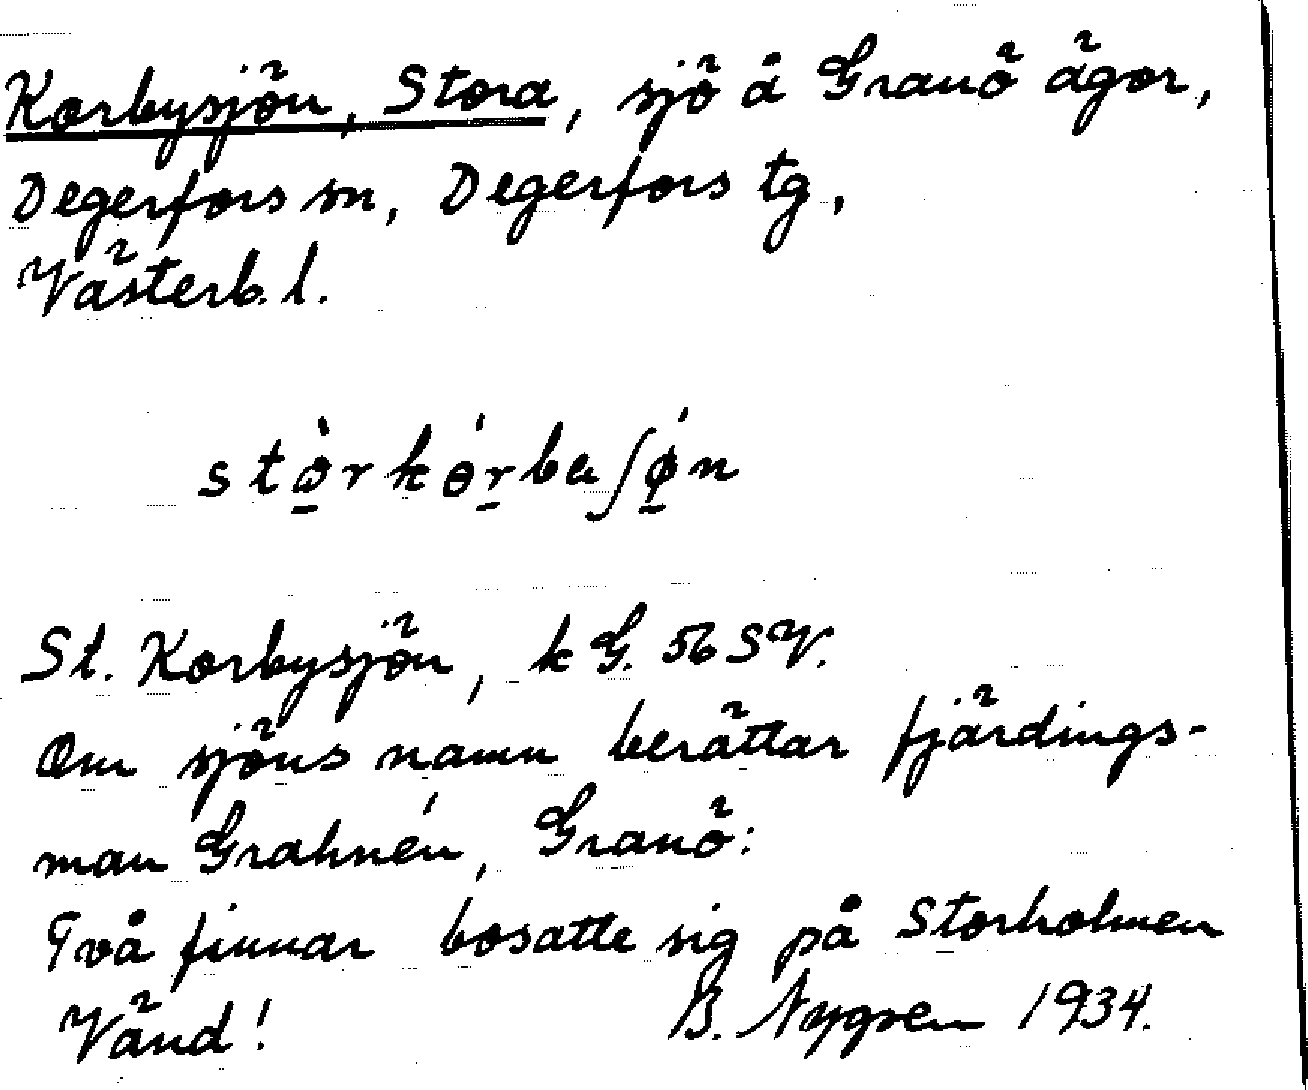 Korbysjön, Stora, sjö å Granö ägor,
Degerfors sn, Degerfors tg,
Västerb. l.
stòrkȯ́rbaʃǿn
St. Korbysjön, kG. 56 SV.
Om sjöns namn berättar fjärdings-
man Grahnén, Granö:
Två finnar bosatte sig på Storholmen
Vänd! B. Nygren 1934.